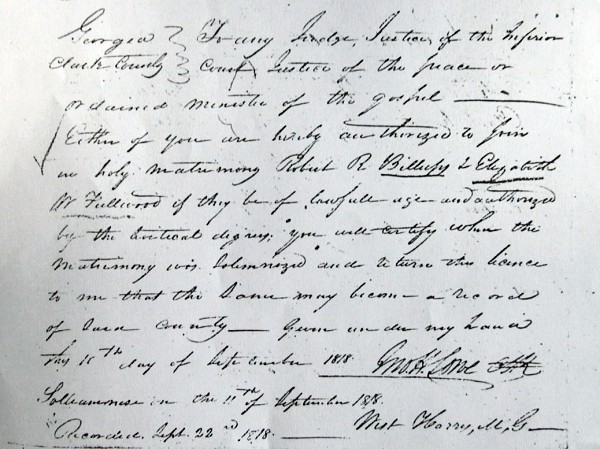 Georgia } To any Judge, Justice of the Inferior
Clark County } Court Justice of the peace or
ordained minister of the gospel
Either of you are hereby authorized to join
in holy matrimony Robert R Billups & Elizabeth
W Fullwood if they be of lawfull age and authorized
by the Levitical degrees, "you will certify when the
matrimony was Solemnized" and return this licence
to me that the same may become a record
of said county — Given under my hand
this 11th day of September 1818. Jno. H. Lowe
in the 11th of September 1818.
West Harris, M. G
Recorded Sept. 22nd 1818.